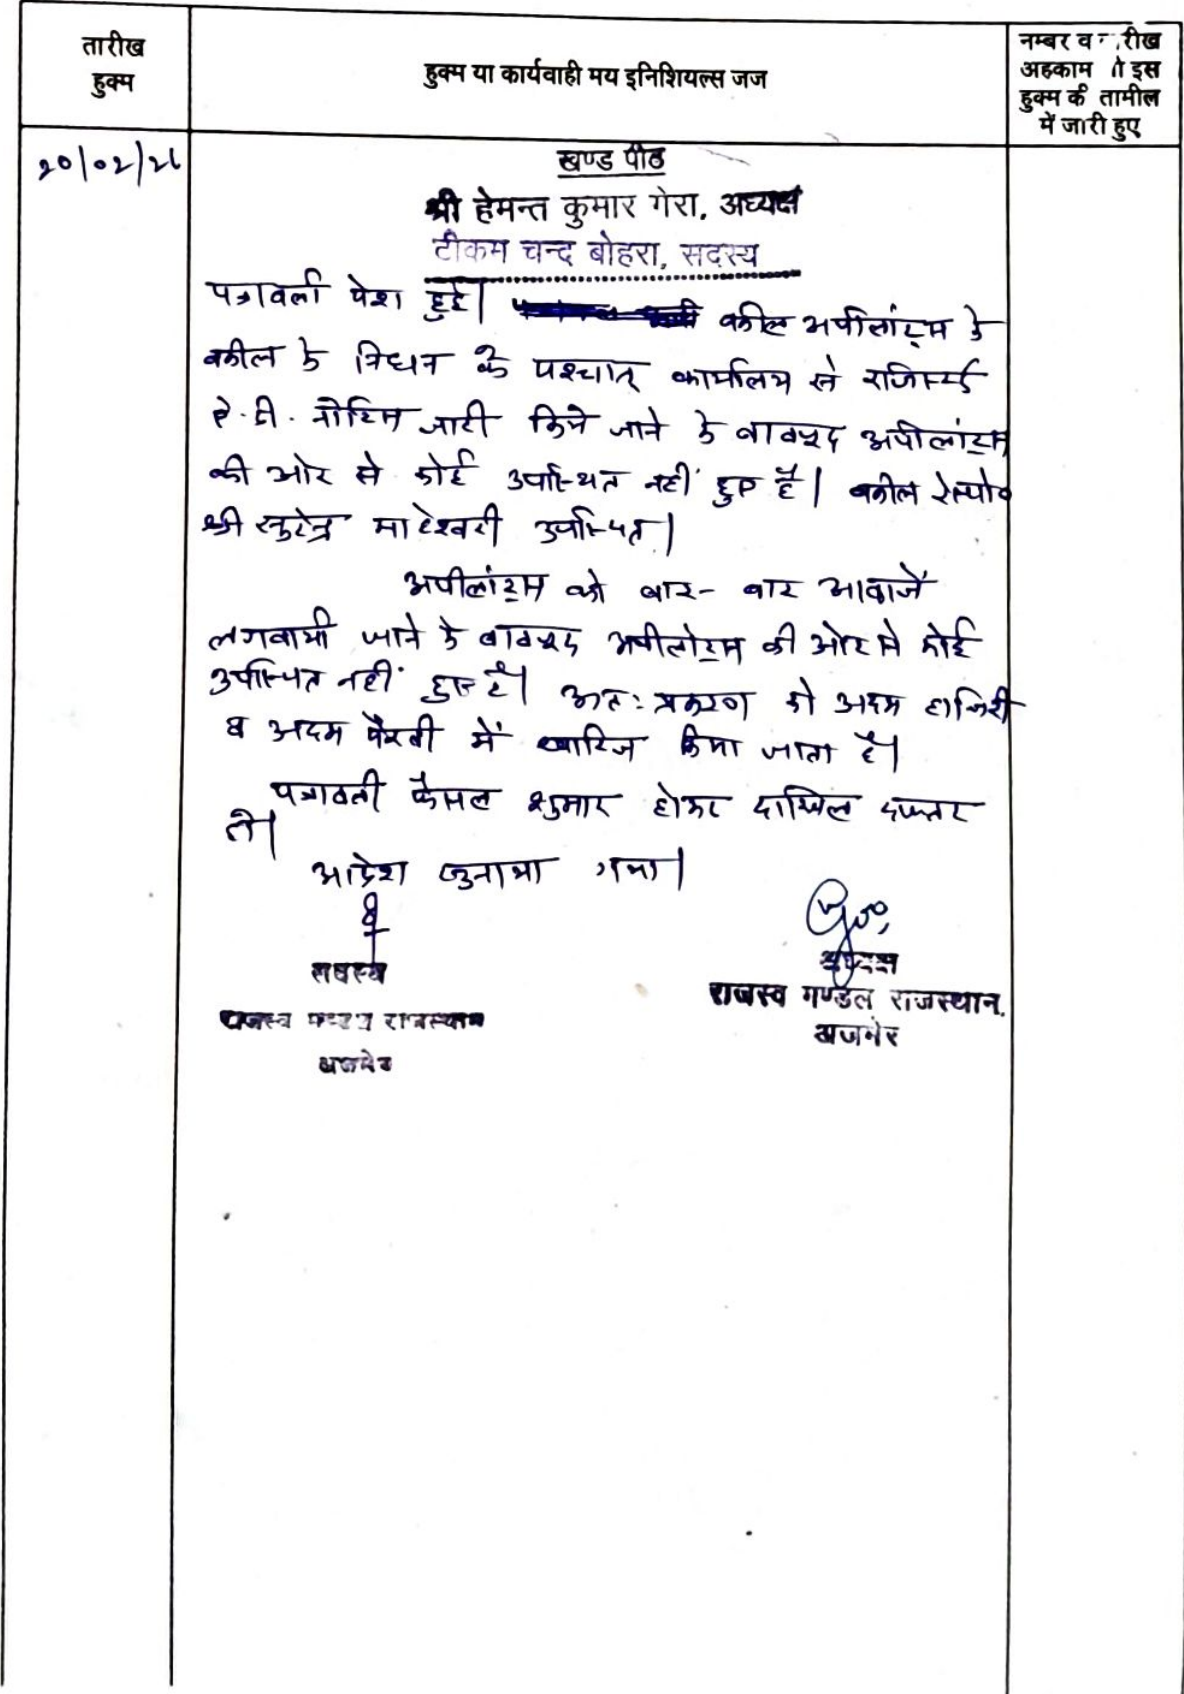 तारीख
हुक्म
हुक्म या कार्यवाही मय इनिशियल्स जज
नम्बर व रीख
अहकाम इस
हुक्म की तामील
में जारी हुए
20/02/26
खण्ड पीठ
श्री हेमन्त कुमार गेरा, अध्यक्ष
टीकम चन्द बोहरा, सदस्य
पत्रावली पेश हुई। वकील अपीलांट्स के
वकील के निधन के पश्चात् कार्यालय से रजिस्टर्ड
ए.डी. नोटिस जारी किये जाने के बावजूद अपीलांट्स
की ओर से कोई उपस्थित नहीं हुए है। वकील रेस्पो०
श्री माहेश्वरी उपस्थित।
अपीलांट्स को बार-बार आवाजें
लगवायी जाने के बावजूद अपीलांट्स की ओर से कोई
उपस्थित नहीं हुए है। अतः प्रकरण को अदम हाजिरी
व अदम पैरवी में खारिज किया जाता है।
पत्रावली फैसल शुमार होकर दाखिल दफ्तर
हो।
आदेश सुनाया गया।
सदस्य
राजस्व मण्डल राजस्थान
अजमेर
अध्यक्ष
राजस्व मण्डल राजस्थान,
अजमेर